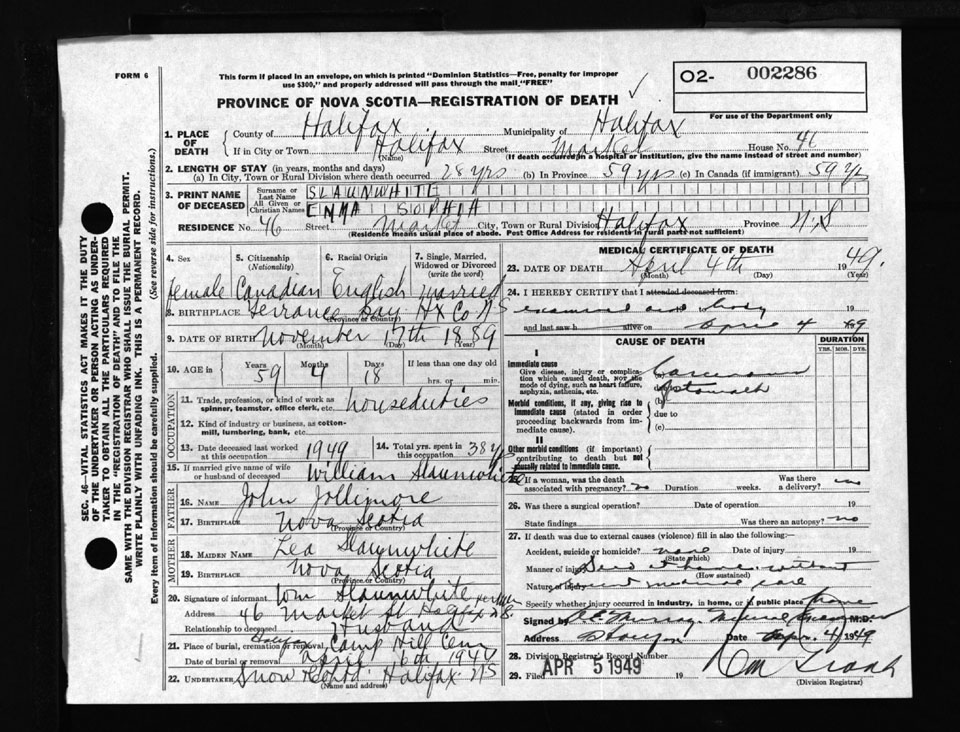 FORM 6
This form if placed in an envelope, on which is printed "Dominion Statistics—Free, penalty for improper
use $300," and properly addressed will pass through the mail "FREE"
O2- 002286
PROVINCE OF NOVA SCOTIA—REGISTRATION OF DEATH
For use of the Department only
1. PLACE OF DEATH
County of Halifax Municipality of Halifax
If in City or Town Halifax Street Market House No. 46
(Name) (If death occurred in a hospital or institution, give the name instead of street and number)
2. LENGTH OF STAY (in years, months and days)
(a) In City, Town or Rural Division where death occurred 28 yrs (b) In Province 59 yrs (c) In Canada (if immigrant) 59 yr
3. PRINT NAME OF DECEASED
Surname or Last Name SLAUNWHITE
All Given or Christian Names EMMA SOPHIA
RESIDENCE No. 46 Street Market City, Town or Rural Division Halifax Province N.S
(Residence means usual place of abode. Post Office Address for residents in rural parts not sufficient)
4. Sex 5. Citizenship (Nationality) 6. Racial Origin 7. Single, Married, Widowed or Divorced (write the word)
female Canadian English married
8. BIRTHPLACE Terrance Bay Hx Co NS
(Province or Country)
9. DATE OF BIRTH November 17th 1889
(Month) (Day) (Year)
10. AGE in Years Months Days If less than one day old
59 4 18 hrs. or min.
OCCUPATION
11. Trade, profession, or kind of work as
spinner, teamster, office clerk, etc. houseduties
12. Kind of industry or business, as cotton-
mill, lumbering, bank, etc.
13. Date deceased last worked at this occupation 1949 14. Total yrs. spent in this occupation 38 yr
15. If married give name of wife
or husband of deceased William Slaunwhite
FATHER
16. NAME John Jollimore
17. BIRTHPLACE Nova Scotia
(Province or Country)
MOTHER
18. MAIDEN NAME Lea Slaunwhite
19. BIRTHPLACE Nova Scotia
(Province or Country)
20. Signature of informant Wm Slaunwhite
Address 46 Market St
Relationship to deceased Husband
21. Place of burial, cremation or removal Halifax Camp Hill Cem
Date of burial or removal April 6th 194
22. UNDERTAKER Snow Halifax NS
(Name and address)
MEDICAL CERTIFICATE OF DEATH
23. DATE OF DEATH April 4th 1949.
(Month) (Day) (Year)
24. I HEREBY CERTIFY that I attended deceased from:
examined body 19
and last saw h alive on April 4 49
CAUSE OF DEATH
DURATION
YRS. MOS. DYS.
I
Immediate cause
Give disease, injury or complica-
tion which caused death, not the
mode of dying, such as heart failure,
asphyxia, asthenia, etc.
(a) Carcinoma
of stomach
Morbid conditions, if any, giving rise to
immediate cause (stated in order
proceeding backwards from im-
mediate cause).
(b)
due to
(c)
II
Other morbid conditions (if important)
contributing to death but not
causally related to immediate cause.
25. If a woman, was the death
associated with pregnancy? no Duration weeks. Was there a delivery? no
26. Was there a surgical operation? Date of operation 19
State findings Was there an autopsy? no
27. If death was due to external causes (violence) fill in also the following:
Accident, suicide or homicide? none Date of injury 19
(State which)
Manner of injury Died at home without
(How sustained)
Nature of injury recent medical care
Specify whether injury occurred in industry, in home, or in public place home
Signed by Murray Medical Examiner M.D.
Address Date Apr. 4 1949
28. Division Registrar's Record Number
29. Filed APR 5 1949 19
(Division Registrar)
SEC. 46—VITAL STATISTICS ACT MAKES IT THE DUTY
OF THE UNDERTAKER OR PERSON ACTING AS UNDER-
TAKER TO OBTAIN ALL THE PARTICULARS REQUIRED
IN THE "REGISTRATION OF DEATH" AND TO FILE THE
SAME WITH THE DIVISION REGISTRAR WHO SHALL ISSUE THE BURIAL PERMIT.
WRITE PLAINLY WITH UNFADING INK. THIS IS A PERMANENT RECORD.
Every item of information should be carefully supplied. (See reverse side for instructions.)